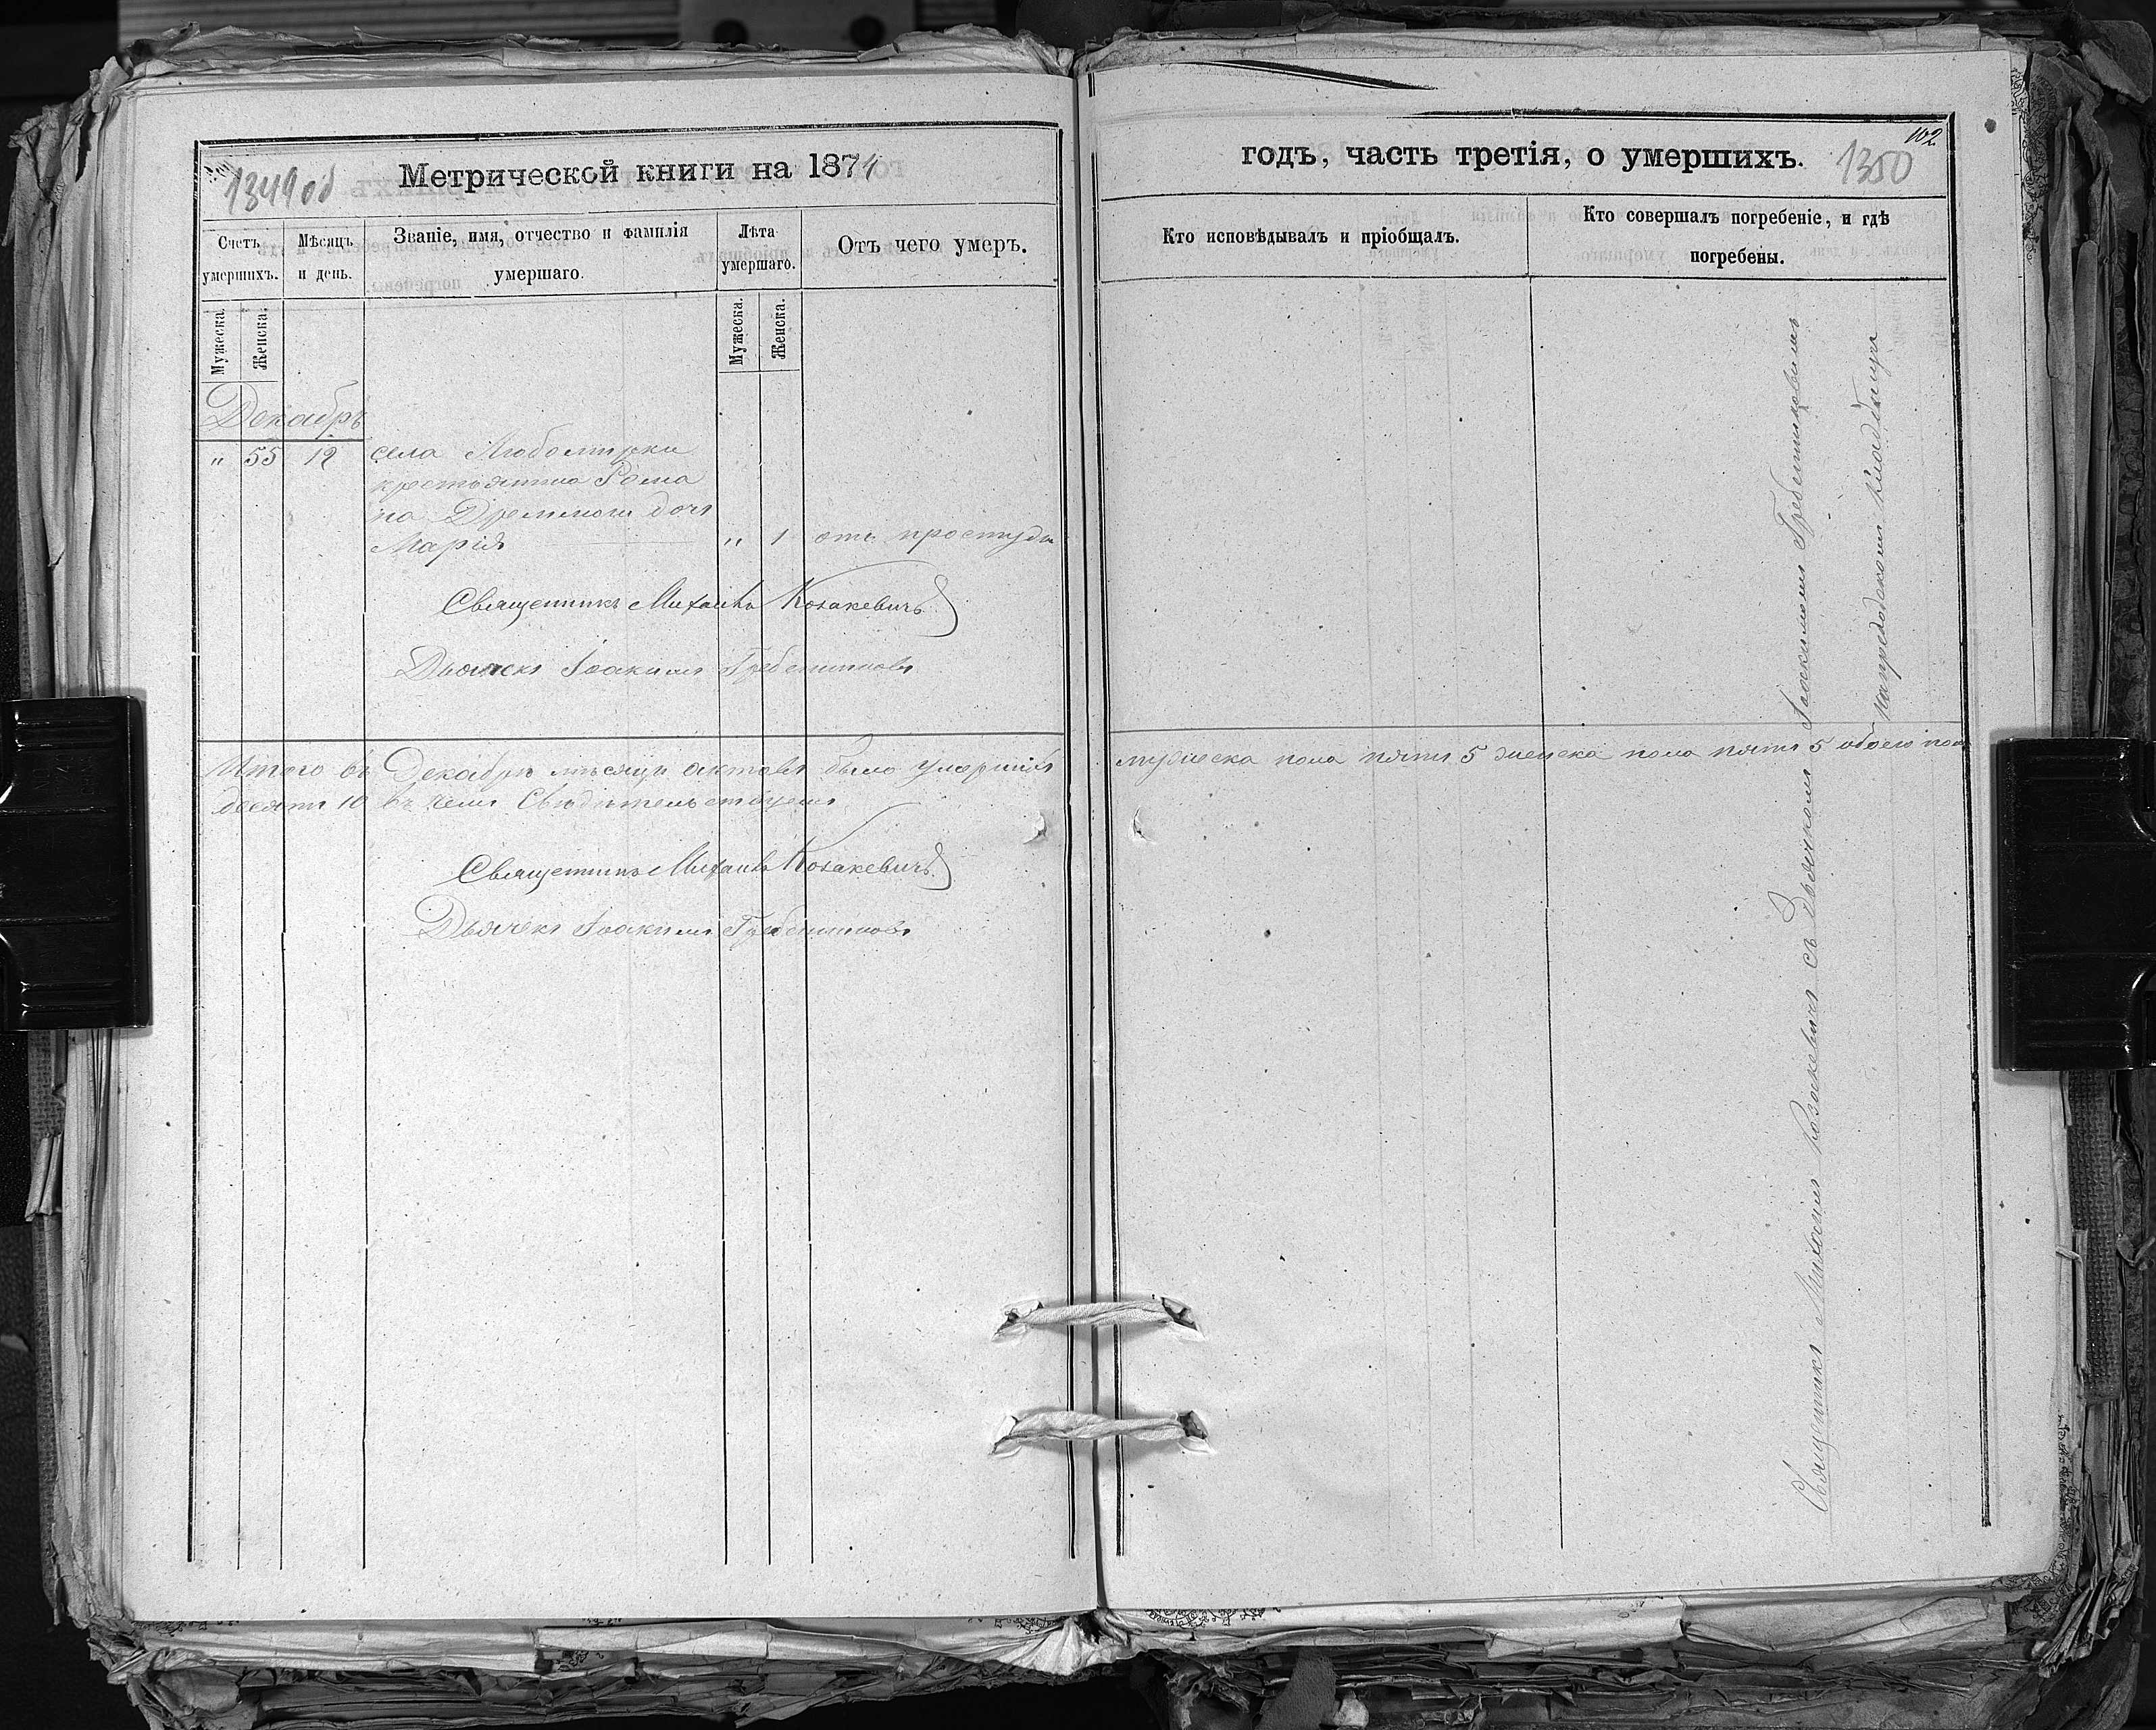 1349 об
Метрической книги на 1874
Счетъ умершихъ.
Мѣсяцъ и день.
Званіе, имя, отчество и фамилія умершаго.
Лѣта умершаго.
Отъ чего умеръ.
Мужеска.
Женска.
Мужеска.
Женска.
Декабрь
" 55 12 села Любомирки
крестьянина Рома
на дочь
Марія " 1 отъ простуды
Священникъ Михаилъ Козакевичъ
Дьячекъ Іоакимъ Гребенниковъ
Итого въ Декабрѣ мѣсяцѣ актовъ было умершихъ
десять 10 въ чемъ Свидѣтельствуемъ
Священникъ Михаилъ Козакевичъ
Дьячекъ Іоакимъ Гребенниковъ
годъ, часть третія, о умершихъ.
102
1350
Кто исповѣдывалъ и пріобщалъ.
Кто совершалъ погребеніе, и гдѣ
погребены.
мужеска пола пять 5 женска пола пять 5 обоего пола
Священникъ Михаилъ Козакевичъ съ Дьячкомъ Іоакимомъ Гребенниковымъ
на приходскомъ кладбищѣ